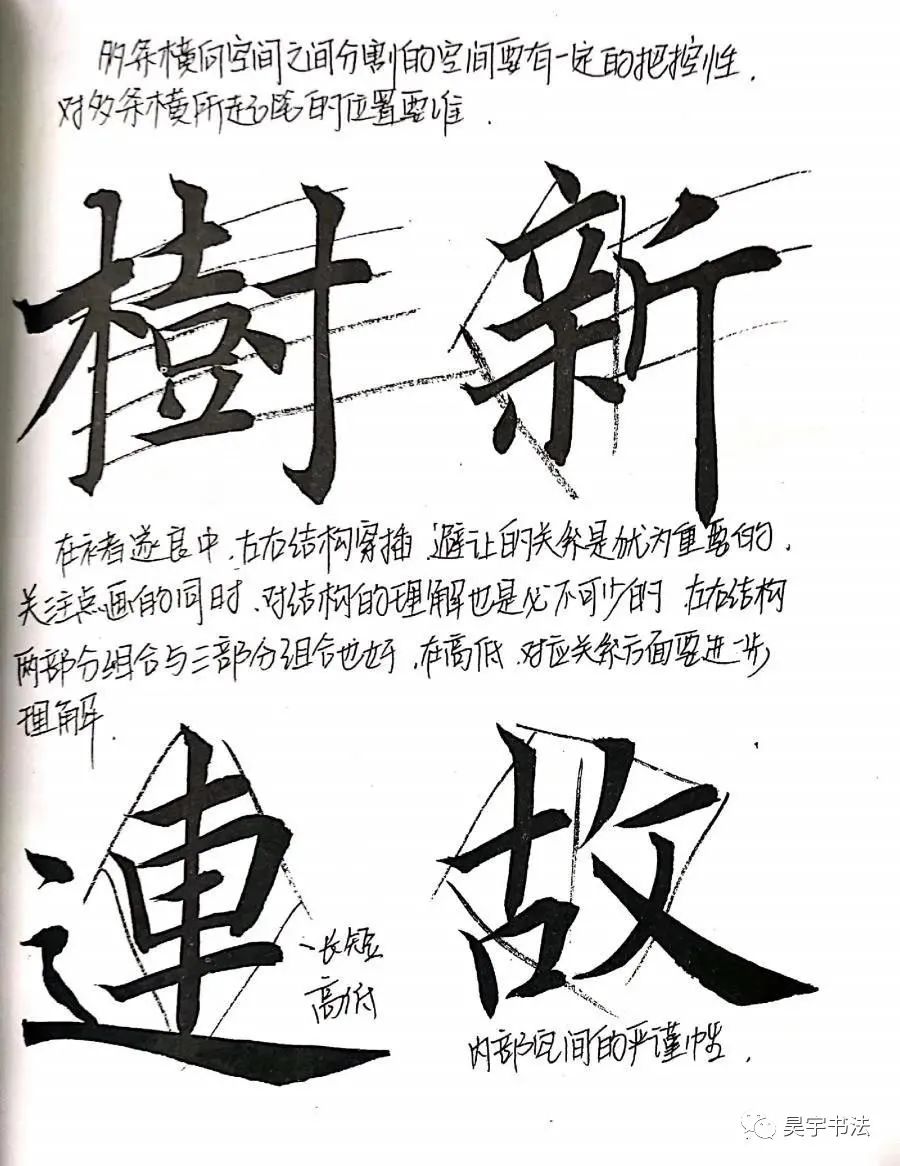 多条横向空间之间分割的空间要有一定的把控性.
对多条横所起之的位置要准.
樹 新
在褚遂良中.左右结构穿插.避让的关系是尤为重要的.
关注点画的同时.对结构的理解也是必不可少的 左右结构
两部分组合与三部分组合也好.在高低.对应关系方面要进一步
理解.
連 故
长短
高低
内部空间的严谨性.
昊宇书法